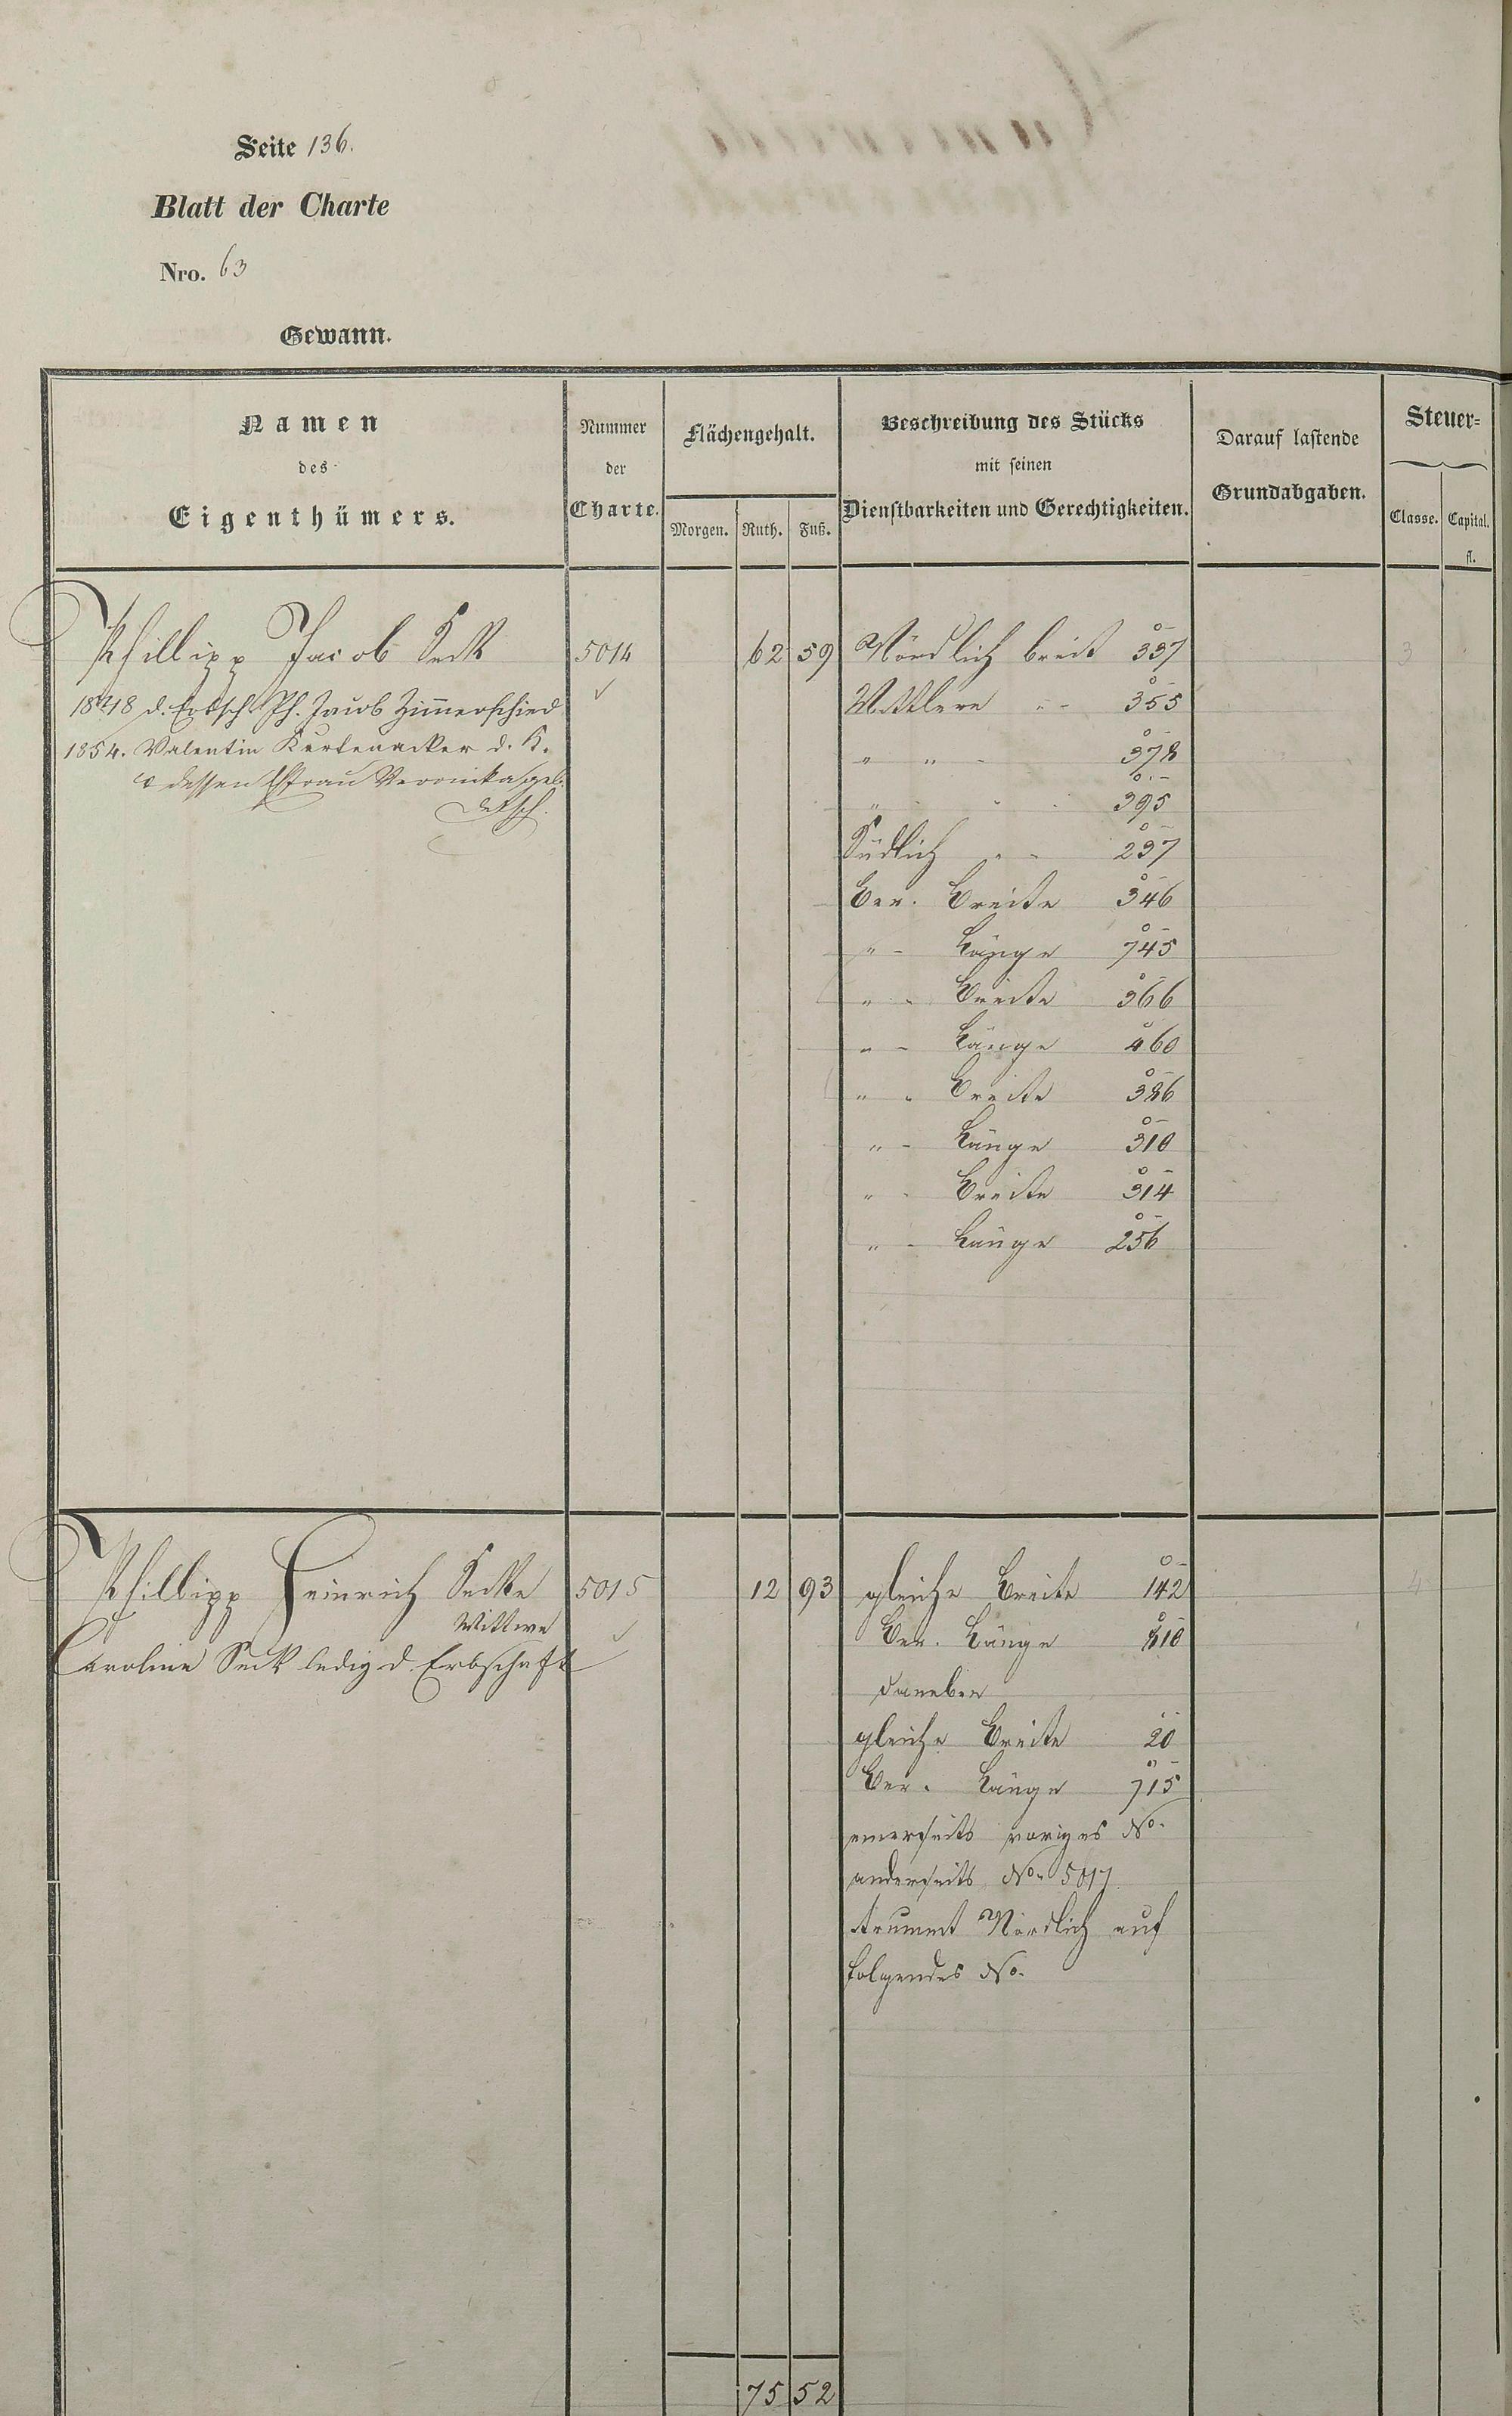 Seite 136.
Blatt der Charte
Nro. 63
Gewann.
Namen
des
Eigenthümers.
Nummer
der
Charte.
Flächengehalt.
Morgen. Ruth. Fuß.
Beschreibung des Stücks
mit seinen
Dienstbarkeiten und Gerechtigkeiten.
Darauf lastende
Grundabgaben.
Steuer-
Classe. Capital.
fl.
Phillipp Jacob Seck 5014 62 59 Nördlich breit 337 3
1848 d. Erbsch. Ph. Jacob Zimmerschied Mittlere " - 355
1854. Valentin Kurtenacker d. K. " " - 378
& dessen Ehfrau Veronika geb. " " 395
Südlich " - 237
Ber. Breite 346
" - Länge 745
" - Breite 366
" - Länge 460
" - Breite 386
" - Länge 310
" - Breite 314
" - Länge 256
Phillipp Heinrich Secke 5015 12 93 gleiche Breite 142 4
Wittwe Ber. Länge 810
Caroline Seck ledig d. Erbschaft
daneben
gleiche Breite 20
Ber. Länge 715
einerseits voriges No.
anderseits No. 5017
strummt Nördlich auf
folgendes No.
75 52